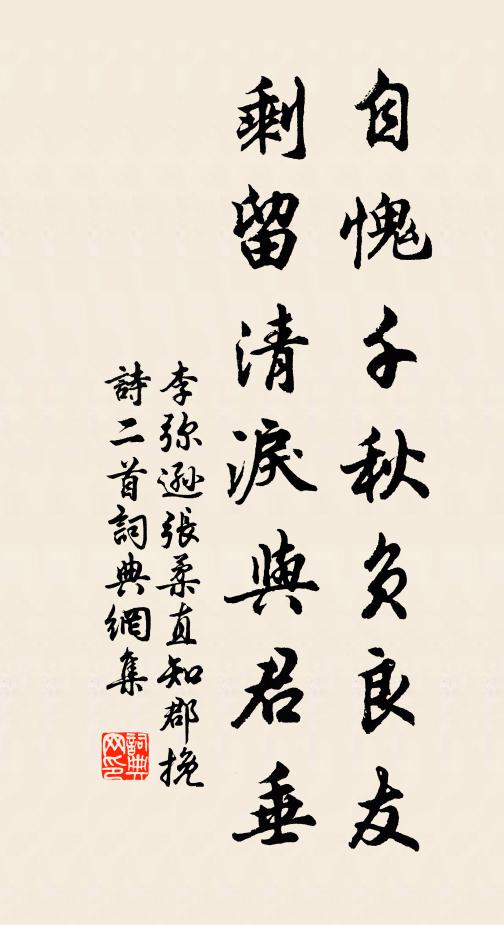 自愧千秋負良友
剩留清淚與君垂
李弥遜張柔直知郡挽
詩二首詞典網集
詞典
网印